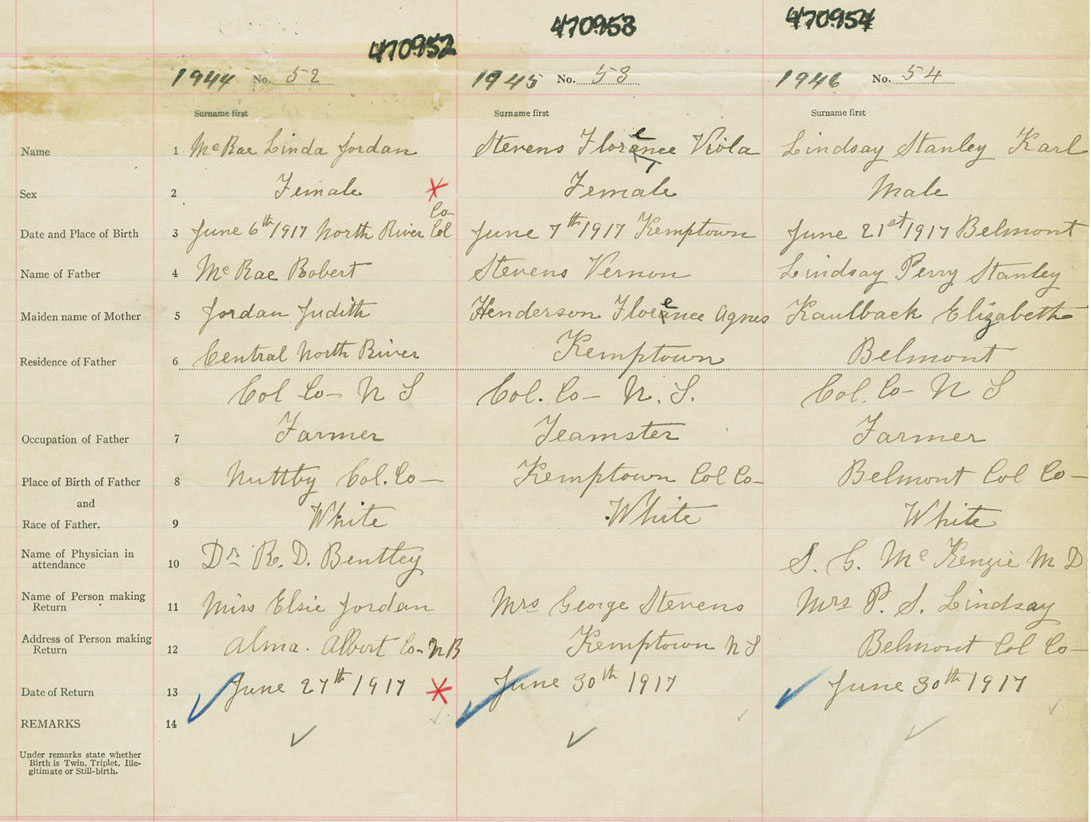 470952 470953 470954
1944 No. 52 1945 No. 53 1946 No. 54
Surname first Surname first Surname first
Name 1 McRae Linda Jordan Stevens Florence Viola Lindsay Stanley Karl
Sex 2 Female Female Male
Co
Date and Place of Birth 3 June 6th 1917 North River Col June 7th 1917 Kemptown June 21st 1917 Belmont
Name of Father 4 McRae Robert Stevens Vernon Lindsay Perry Stanley
Maiden name of Mother 5 Jordan Judith Henderson Florence Agnes Kaulback Elizabeth
Residence of Father 6 Central North River Kemptown Belmont
Col Co— N S Col. Co— N. S. Col. Co— N S
Occupation of Father 7 Farmer Teamster Farmer
Place of Birth of Father 8 Nuttby Col. Co— Kemptown Col Co— Belmont Col Co—
and
Race of Father. 9 White White White
Name of Physician in
attendance 10 Dr R. D. Bentley S. G. McKenzie M D
Name of Person making
Return 11 Miss Elsie Jordan Mrs George Stevens Mrs P. S. Lindsay
Address of Person making
Return 12 Alma. Albert Co— N B Kemptown N S Belmont Col Co—
Date of Return 13 June 27th 1917 June 30th 1917 June 30th 1917
REMARKS 14
Under remarks state whether
Birth is Twin, Triplet, Ille-
gitimate or Still-birth.